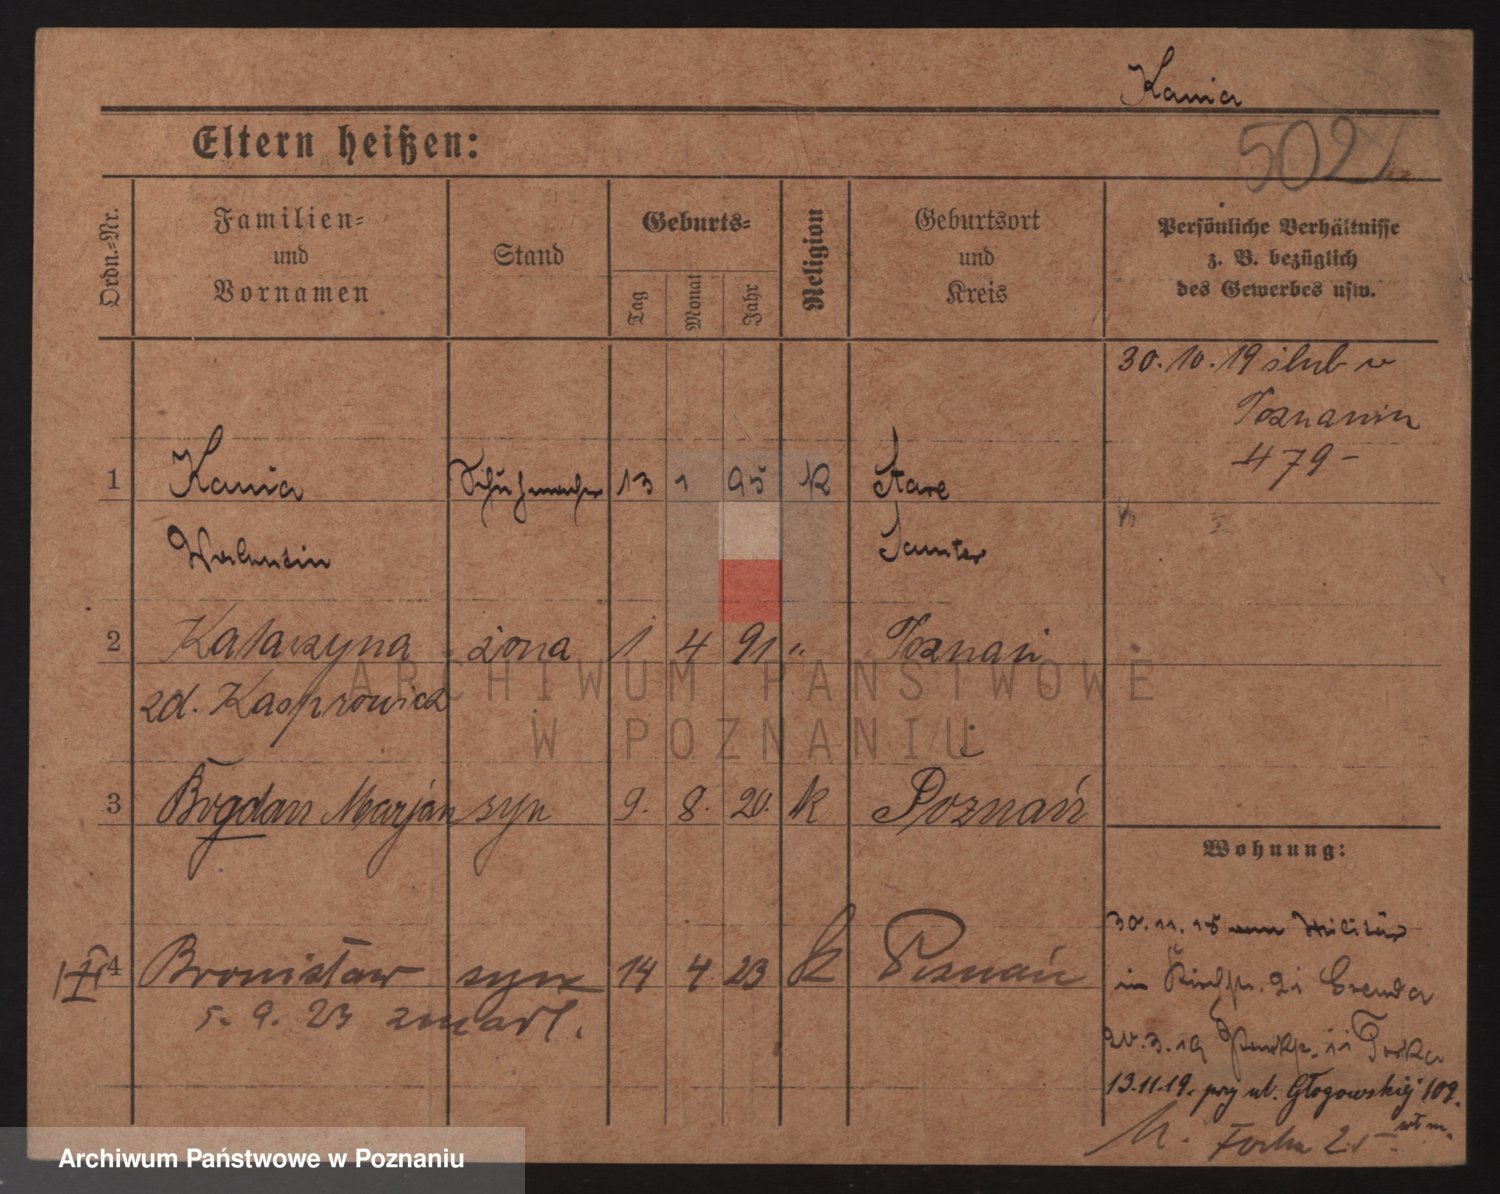 Kania
Eltern heißen:
502
Ordn.=Nr.
Familien=
und
Vornamen
Stand
Geburts=
Tag
Monat
Jahr
Religion
Geburtsort
und
Kreis
Persönliche Verhältnisse
z. B. bezüglich
des Gewerbes usw.
30.10.19 ślub w
Poznaniu
479 -
1 Kania Schuhmacher 13 1 95 K
Valentin Samter
2 Katarzyna żona 1 4 91 " Poznań
zd. Kasprowicz
3 Bogdan Marjan syn 9. 8. 20. k Poznań
Wohnung:
30.11.18 vom Militär
4 Bronisław syn 14 4 23 k Poznań
in
5. 9. 23 zmarł.
20.3.19
13.11.19. przy ul. Głogowskiej 109.
Focha
ARCHIWUM PAŃSTWOWE
W POZNANIU
Archiwum Państwowe w Poznaniu